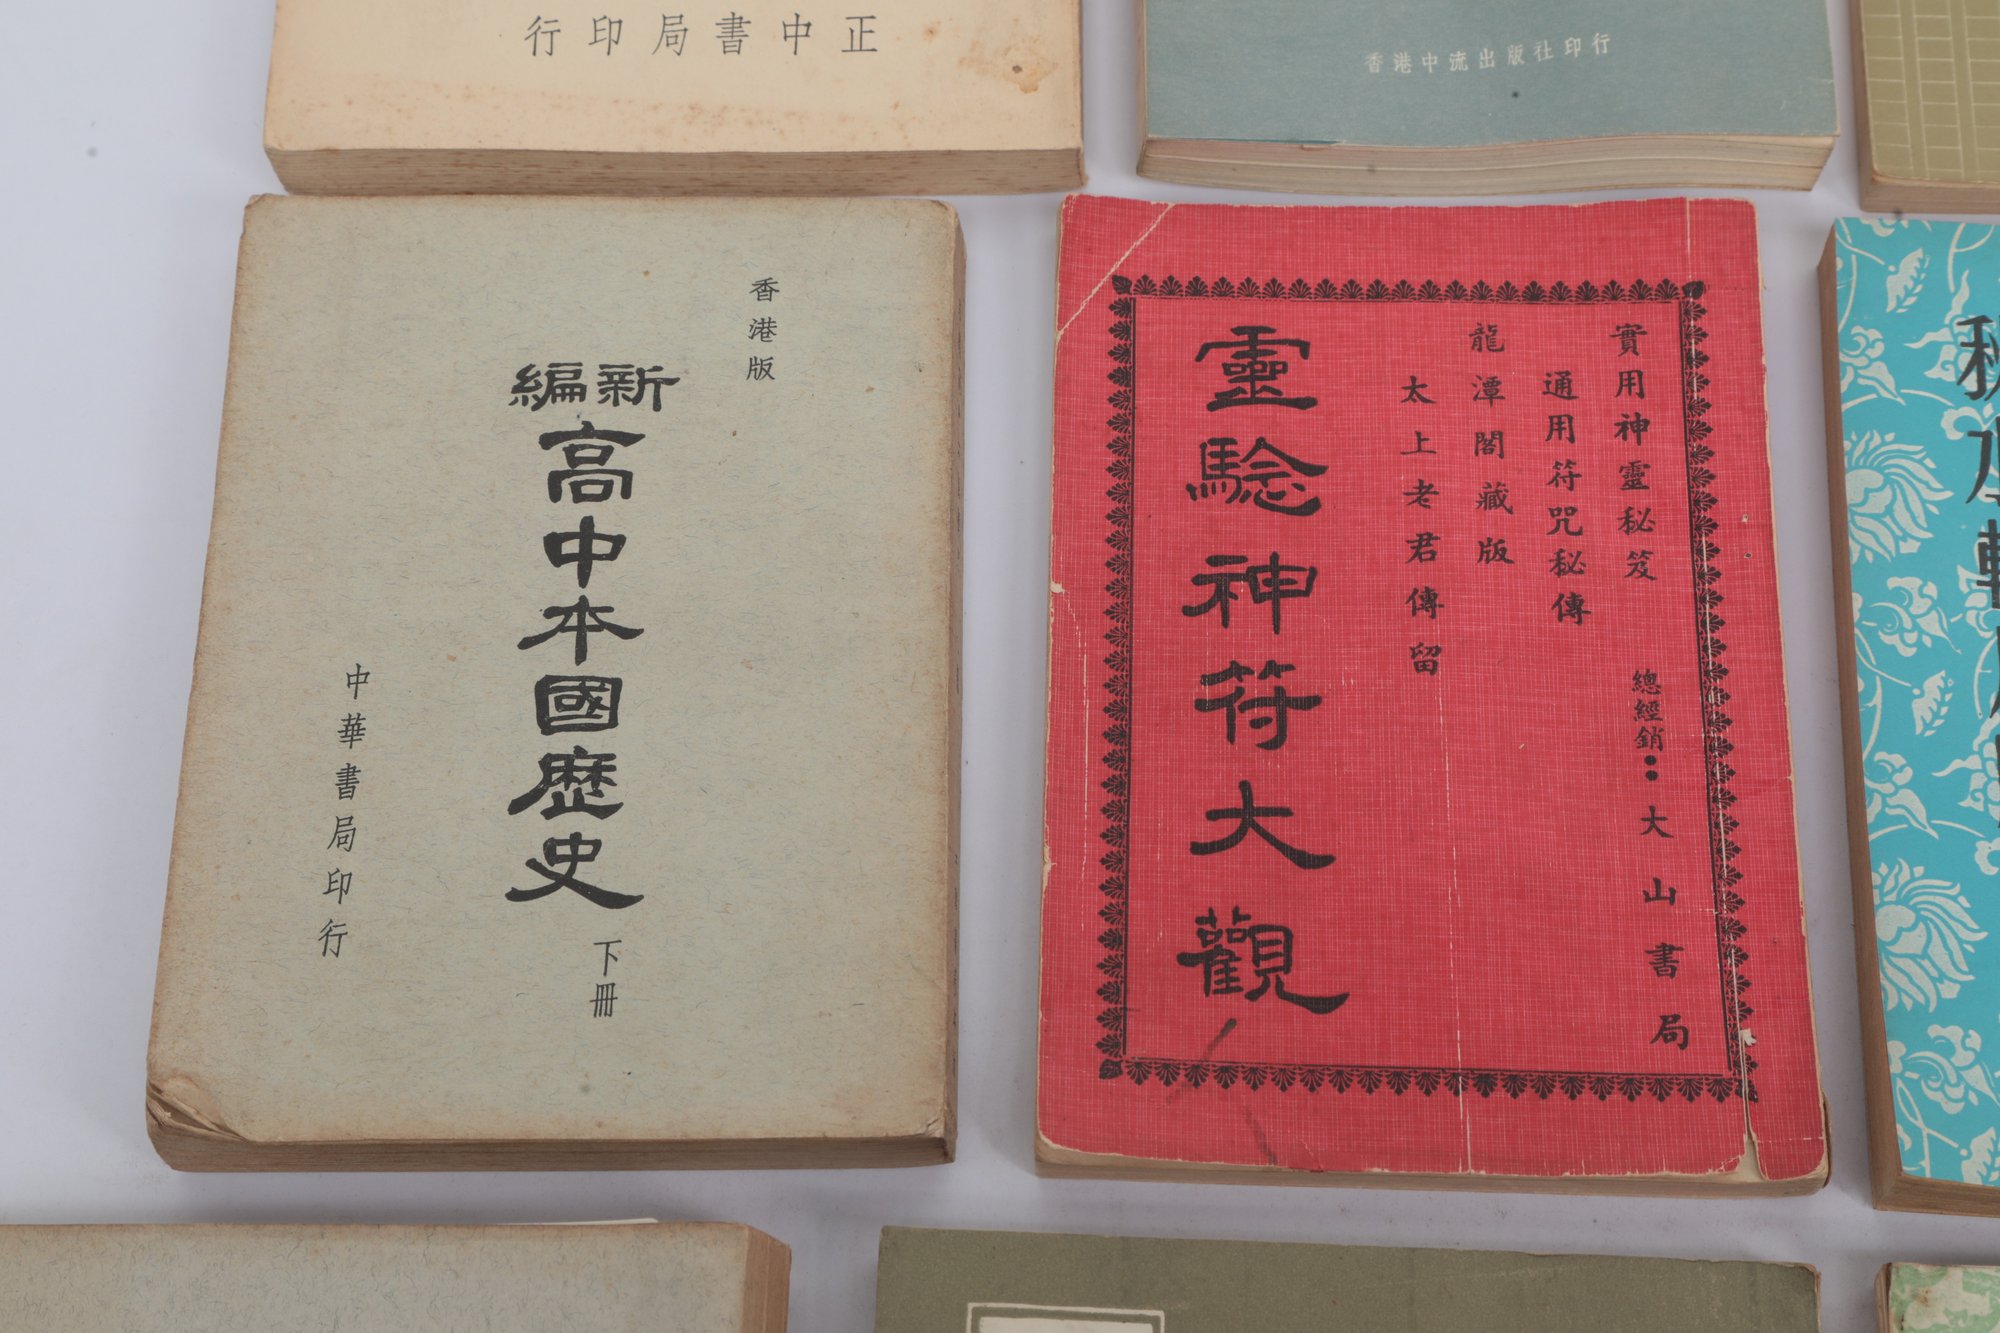 正中書局印行
香港中流出版社印行
香港版
新編
高中本國歷史
下冊
中華書局印行
實用神靈秘笈
總經銷：大山書局
通用符咒秘傳
龍潭閣藏版
太上老君傳留
靈騐神符大觀
秋水軒